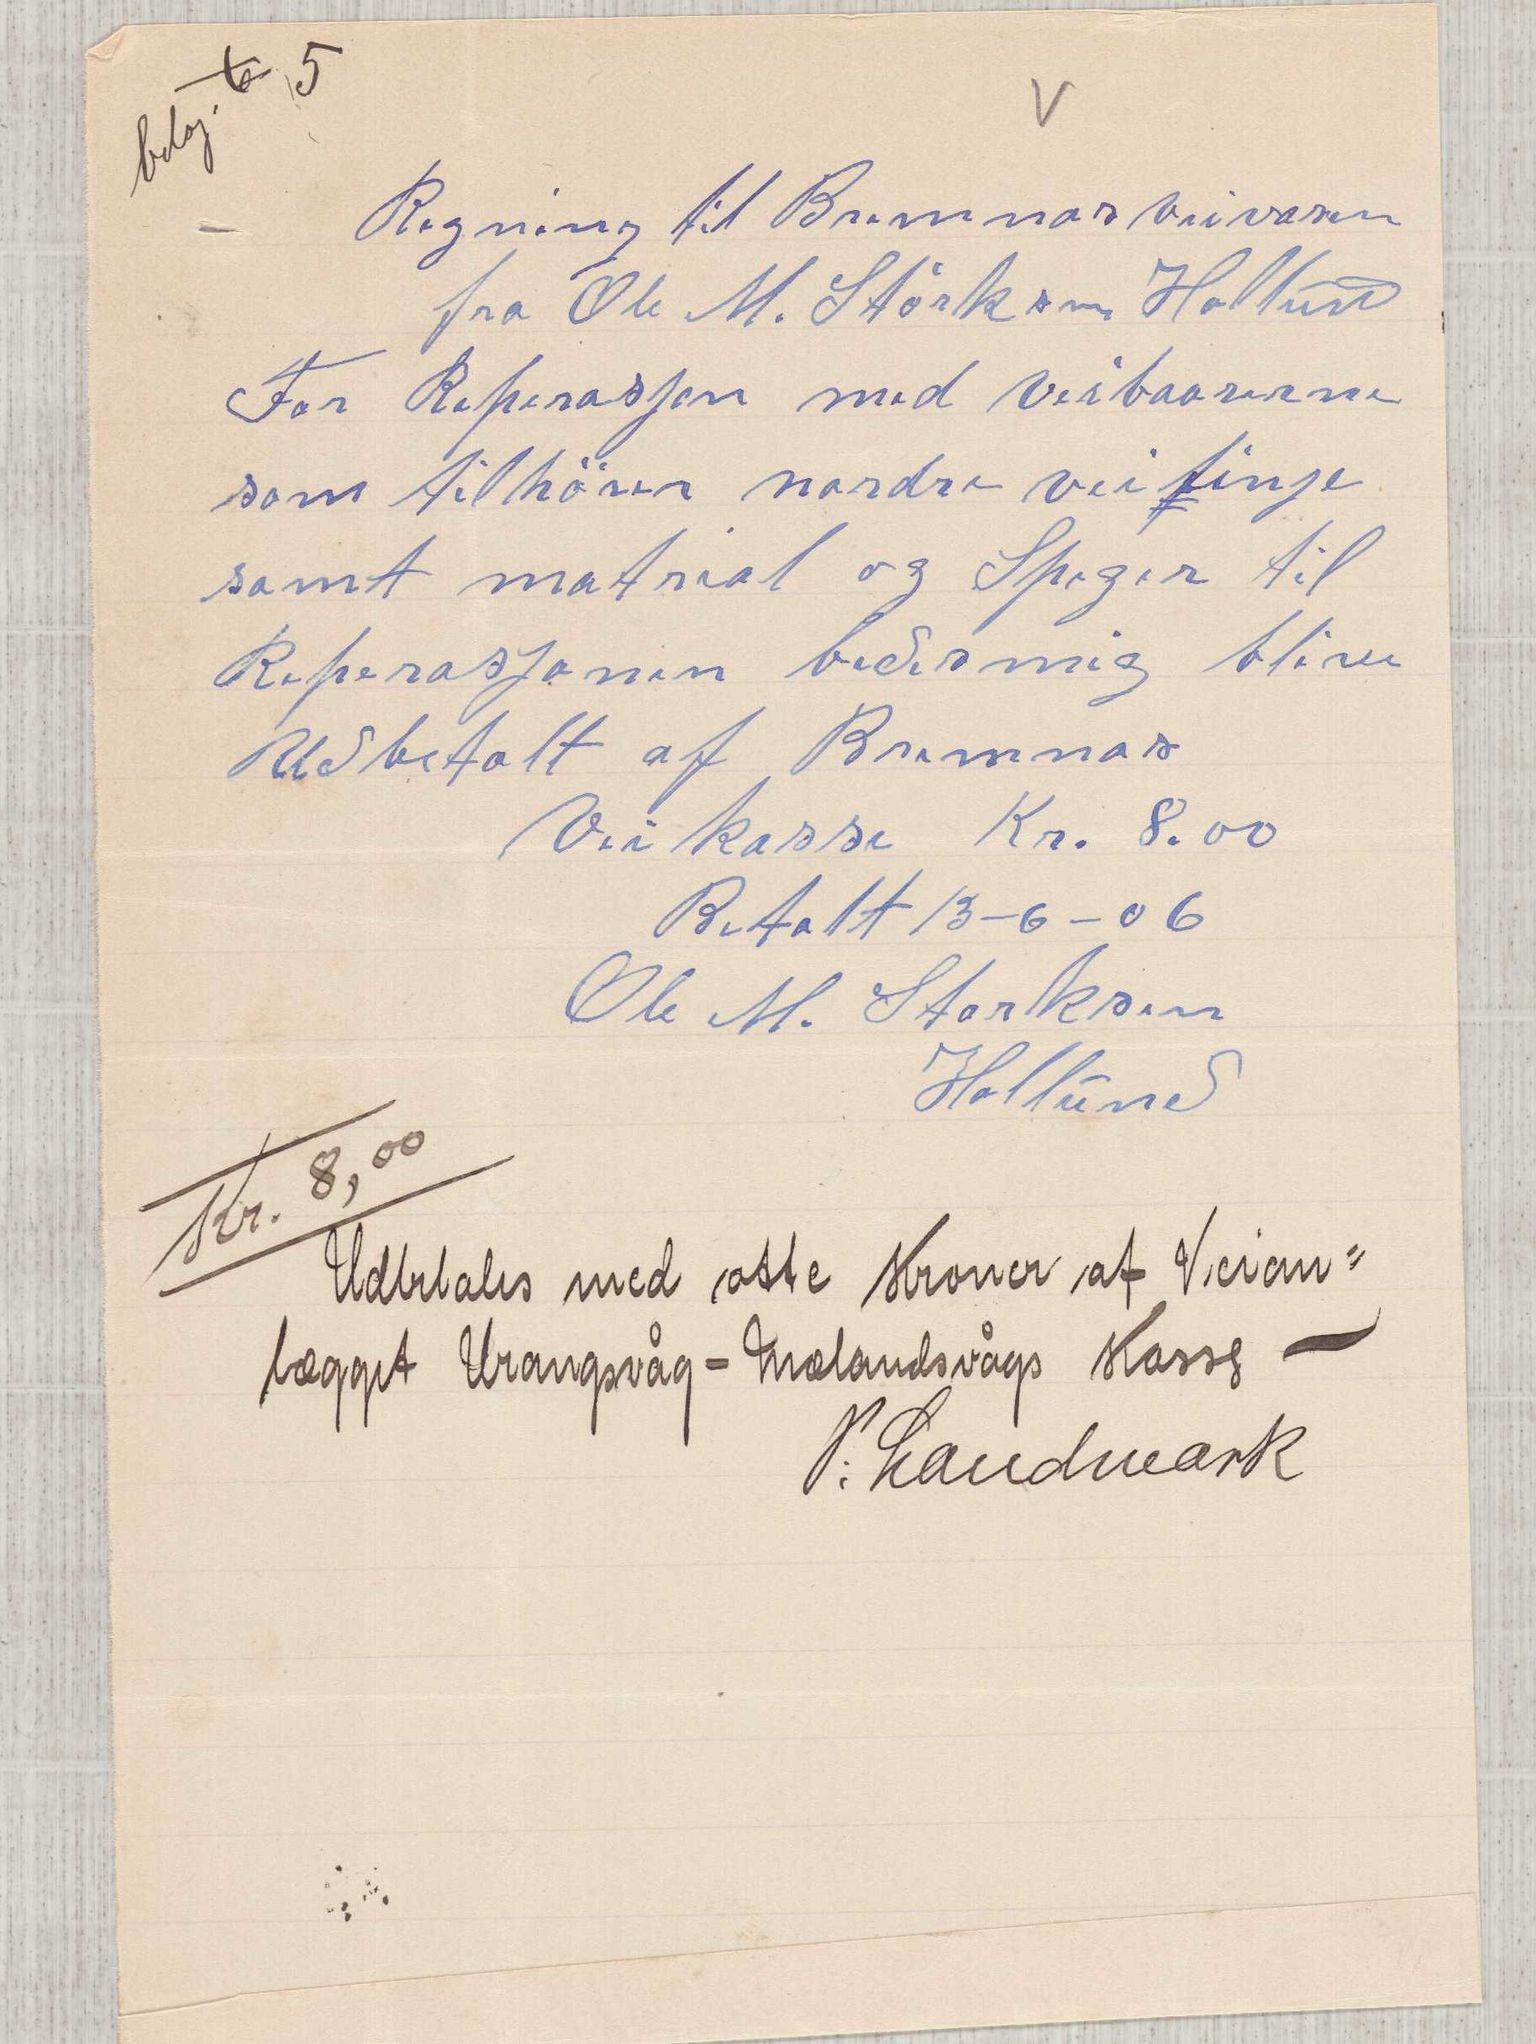 bilag. 6 5
V
Regning til Bremnas veivasen
fra Ole M. Störksen Hollund
For Reperasjon med veibaarerne
som tilhörer nordre vei linje
samt matrial og Speger til
Reperasjonen bedes mig blive
Udbetalt af Bremnas
Vei kasse Kr. 8.00
Betalt 13-6-06
Ole M. Storksen
Hollund
Kr. 8,00
Udbetales med otte Kroner af Veian=
lægget Urangsvåg-Mælandsvågs Kasse —
P. Landmark